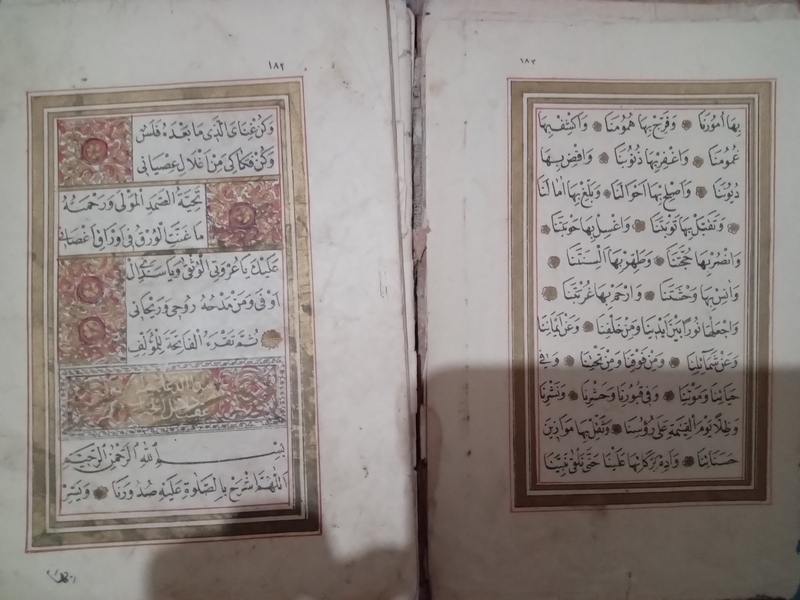 ١٨٢
وَكُنْ غِنَايَ الَّذِي مَا بَعْدَهُ فَلَسٌ
وَكُنْ فَكَاكِي مِنْ اَغْلَالِ عِصْيَانِي
تَحِيَّةُ الصَّمَدِ الْمَوْلٰى وَرَحْمَتُهُ
مَا غَنَّتِ الْوُرْقُ فِي اَوْرَاقِ اَغْصَانِ
عَلَيْكَ يَا عُرْوَتِي الْوُثْقٰى وَيَا سَنَدِي الْ
اَوْفٰى وَمَنْ مَدْحُهُ رُوحِي وَرَيْحَانِي
ثُمَّ تَقْرَءُ الْفَاتِحَةَ لِلْمُؤَلِّفِ
بِسْمِ اللّٰهِ الرَّحْمٰنِ الرَّحِيمِ
اَللّٰهُمَّ اشْرَحْ بِالصَّلٰوةِ عَلَيْهِ صُدُورَنَا وَيَسِّرْ
بها
١٨٣
بِهَا اُمُورَنَا وَفَرِّجْ بِهَا هُمُومَنَا وَاكْشِفْ بِهَا
غُمُومَنَا وَاغْفِرْ بِهَا ذُنُوبَنَا وَاقْضِ بِهَا
دُيُونَنَا وَاَصْلِحْ بِهَا اَحْوَالَنَا وَبَلِّغْ بِهَا اٰمَالَنَا
وَتَقَبَّلْ بِهَا تَوْبَتَنَا وَاغْسِلْ بِهَا حَوْبَتَنَا
وَانْصُرْ بِهَا حُجَّتَنَا وَطَهِّرْ بِهَا اَلْسِنَتَنَا
وَاٰنِسْ بِهَا وَحْشَتَنَا وَارْحَمْ بِهَا غُرْبَتَنَا
وَاجْعَلْهَا نُورًا بَيْنَ اَيْدِينَا وَمِنْ خَلْفِنَا وَعَنْ اَيْمَانِنَا
وَعَنْ شَمَائِلِنَا وَمِنْ فَوْقِنَا وَمِنْ تَحْتِنَا وَفِي
حَيَاتِنَا وَمَوْتِنَا وَفِي قُبُورِنَا وَحَشْرِنَا وَنَشْرِنَا
وَظِلًّا يَوْمَ الْقِيٰمَةِ عَلٰى رُؤُسِنَا وَثَقِّلْ بِهَا مَوَازِينَ
حَسَنَاتِنَا وَاَدِمْ بَرَكَاتِهَا عَلَيْنَا حَتّٰى نَلْقٰى نَبِيَّنَا